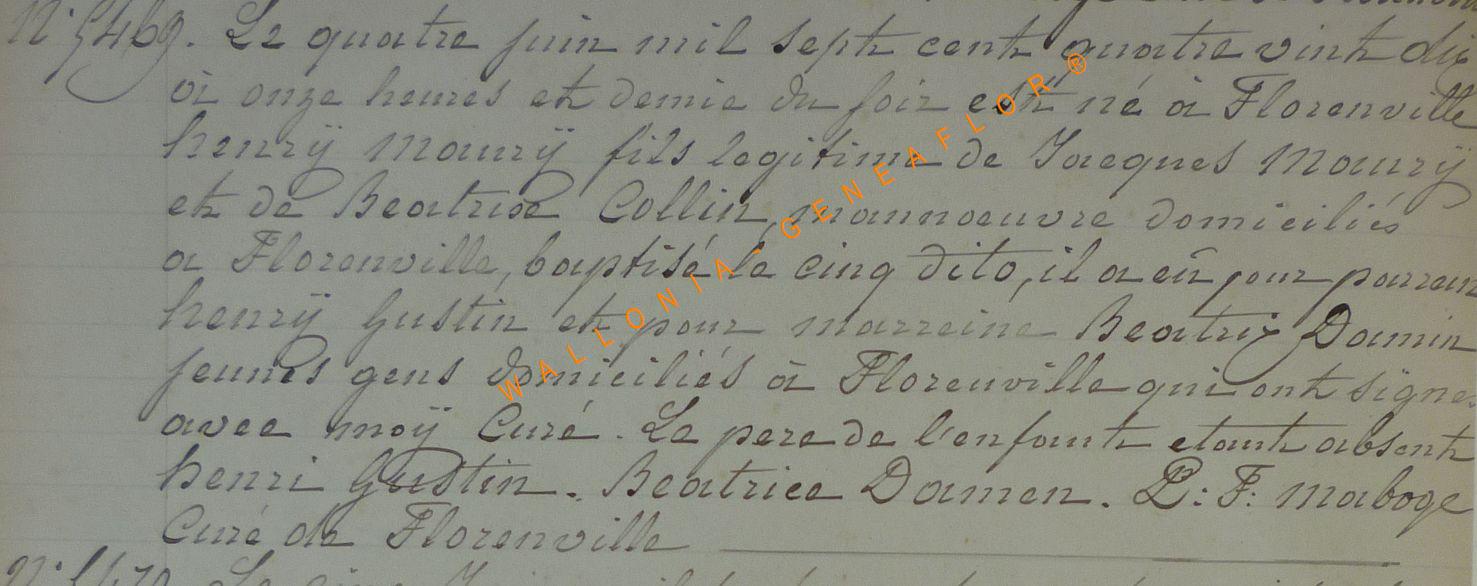 N° 5469. Le quatre juin mil sept cent quatre vint dix
à onze heures et demie du soir est né à Florenville
henrÿ Maurÿ fils legitime de Jacques Maurÿ
et de Beatrise Collin, mannoeuvre domiciliés
a Florenville, baptisé le cinq dito, il a eû pour parrein
henrÿ Gustin et pour marreine Beatrix Damin
jeunes gens domiciliés à Florenville qui ont signe
avec moÿ Curé. Le pere de l'enfant etant absent
henri Gustin. Beatrice Damen. P: F: Maboge
Curé de Florenville
WALLONIA-GENEAFLOR®